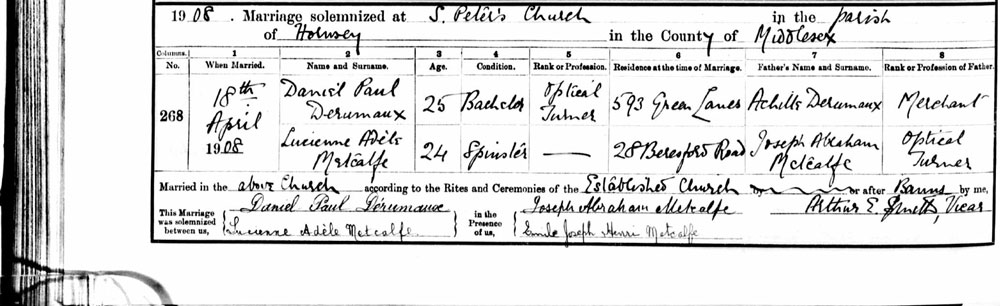 1908. Marriage solemnized at S. Peter's Church in the parish
of Hornsey in the County of Middlesex
Columns. 1 2 3 4 5 6 7 8
No. When Married. Name and Surname. Age. Condition. Rank or Profession. Residence at the time of Marriage. Father's Name and Surname. Rank or Profession of Father.
268
18th April 1908
Daniel Paul Derumaux 25 Bachelor Optical Turner 593 Green Lanes Achille Derumaux Merchant
Lucienne Adèle Metcalfe 24 Spinster — 28 Beresford Road Joseph Abraham Metcalfe Optical Turner
Married in the above Church according to the Rites and Ceremonies of the Established Church or after Banns by me,
This Marriage was solemnized between us, Daniel Paul Dérumaux
Lucienne Adèle Metcalfe
in the Presence of us, Joseph Abraham Metcalfe
Emile Joseph Henri Metcalfe
Arthur E. Vicar